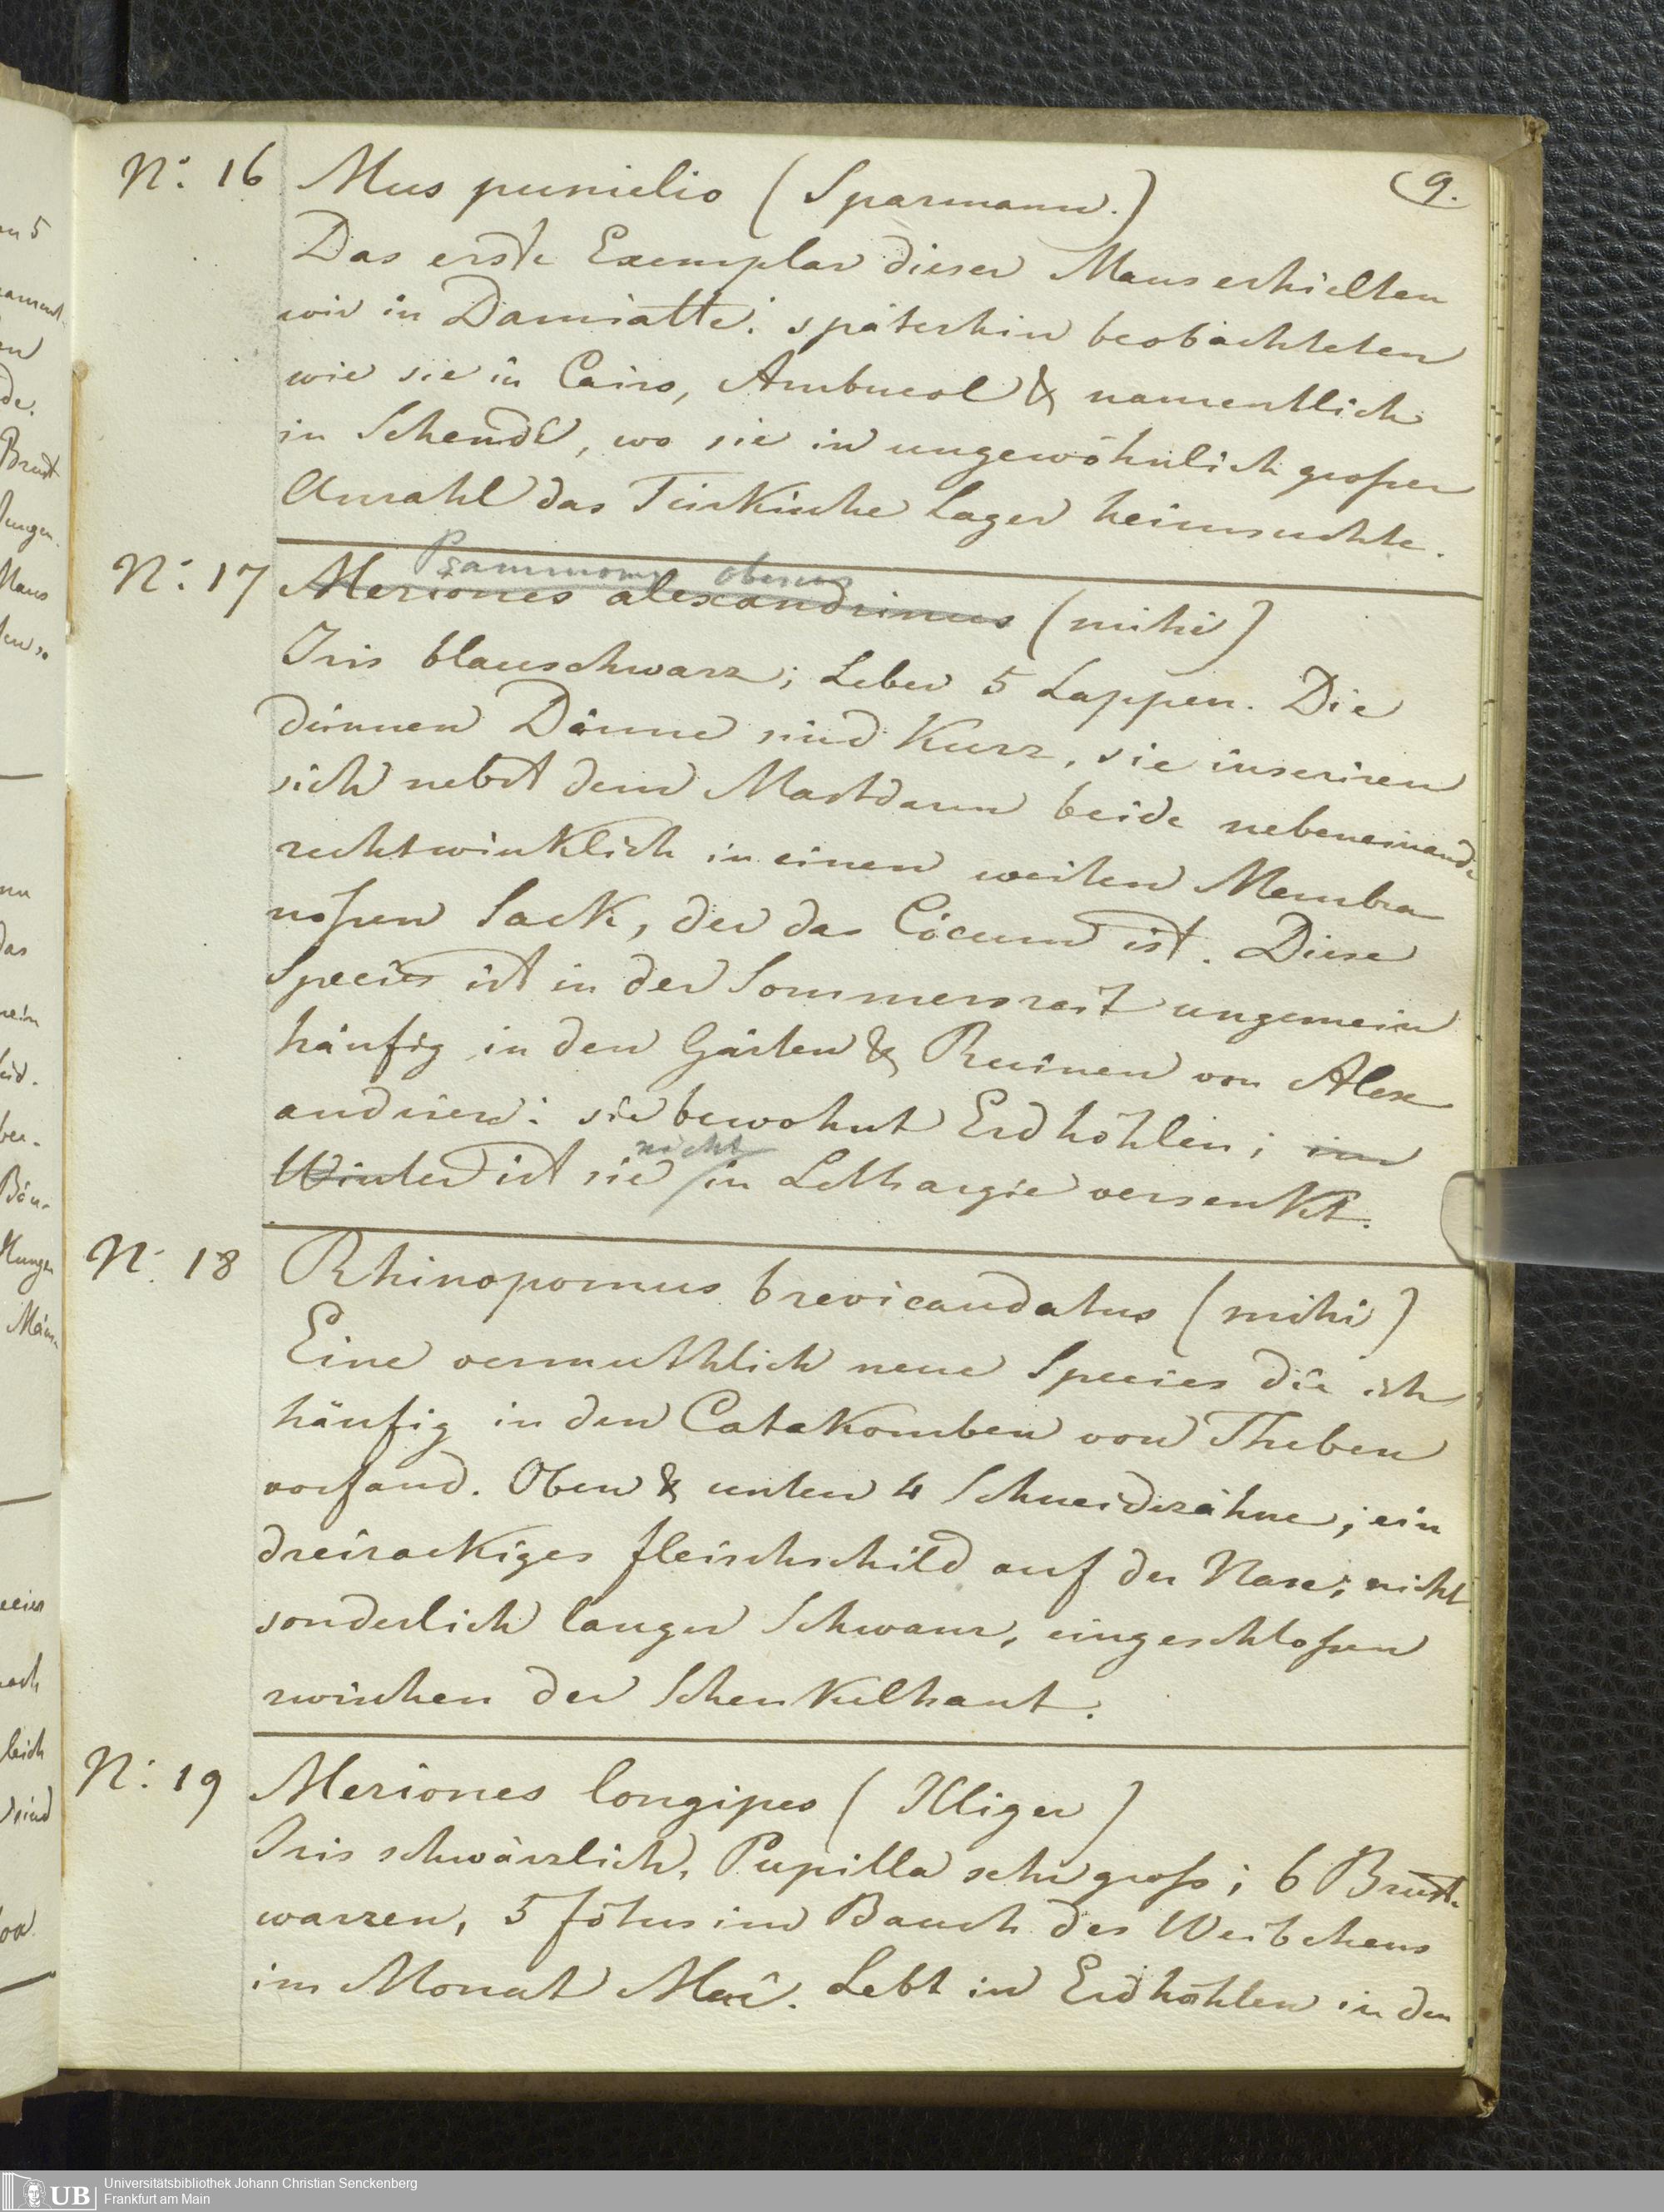 9.
N: 16 Mus pumelio (Sparmann.)
Das erste Exemplar dieser Maus erhielten
wir in Damiatte: späterhin beobachteten
wir sie in Cairo, Ambucol & namentlich
in Schendi, wo sie in ungewöhnlich großer
Anzahl das Türkische Lager heimsuchte.
Psammomys obesus
N: 17 Meriones alexandrinus (mihi)
Iris blauschwarz; Leber 5 Lappen. Die
dünnen Därme sind kurz, sie inseriren
sich nebst dem Mastdarm beide nebeneinander
rechtwinklich in einen weiten Membra
nosen Sack, der das Cöcum ist. Diese
Species ist in der Sommerszeit ungemein
häufig in den Gärten & Ruinen von Alex
andrien: sie bewohnt Erdhöhlen; im
nicht
Winter ist sie in Lethargie versenkt.
N: 18 Rhinopomus brevicaudatus (mihi)
Eine vermuthlich neue Species die ich
häufig in den Catakomben von Theben
vorfand. Oben & unten 4 Schneidezähne; ein
dreizackiges Fleischschild auf der Nase; nicht
sonderlich langer Schwanz, eingeschloßen
zwischen der Schenkelhaut.
N: 19 Meriones longipes (Illiger)
Iris schwärzlich, Pupilla sehr groß; 6 Brust-
warzen, 5 Fötus im Bauch des Weibchens
im Monat Mai. Lebt in Erdhöhlen in den
UB Universitätsbibliothek Johann Christian Senckenberg
Frankfurt am Main